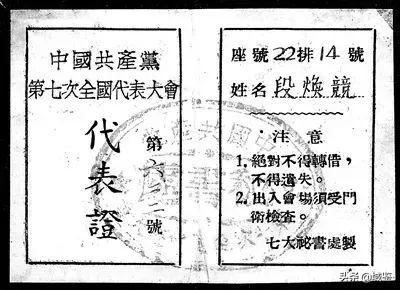 中國共產黨
第七次全國代表大會
代表證
第六三二號
座號22排14號
姓名段煥競
注意
1. 絕對不得轉借，
不得遺失。
2. 出入會場須受門
衛檢查。
七大祕書處製
头条@城鉴